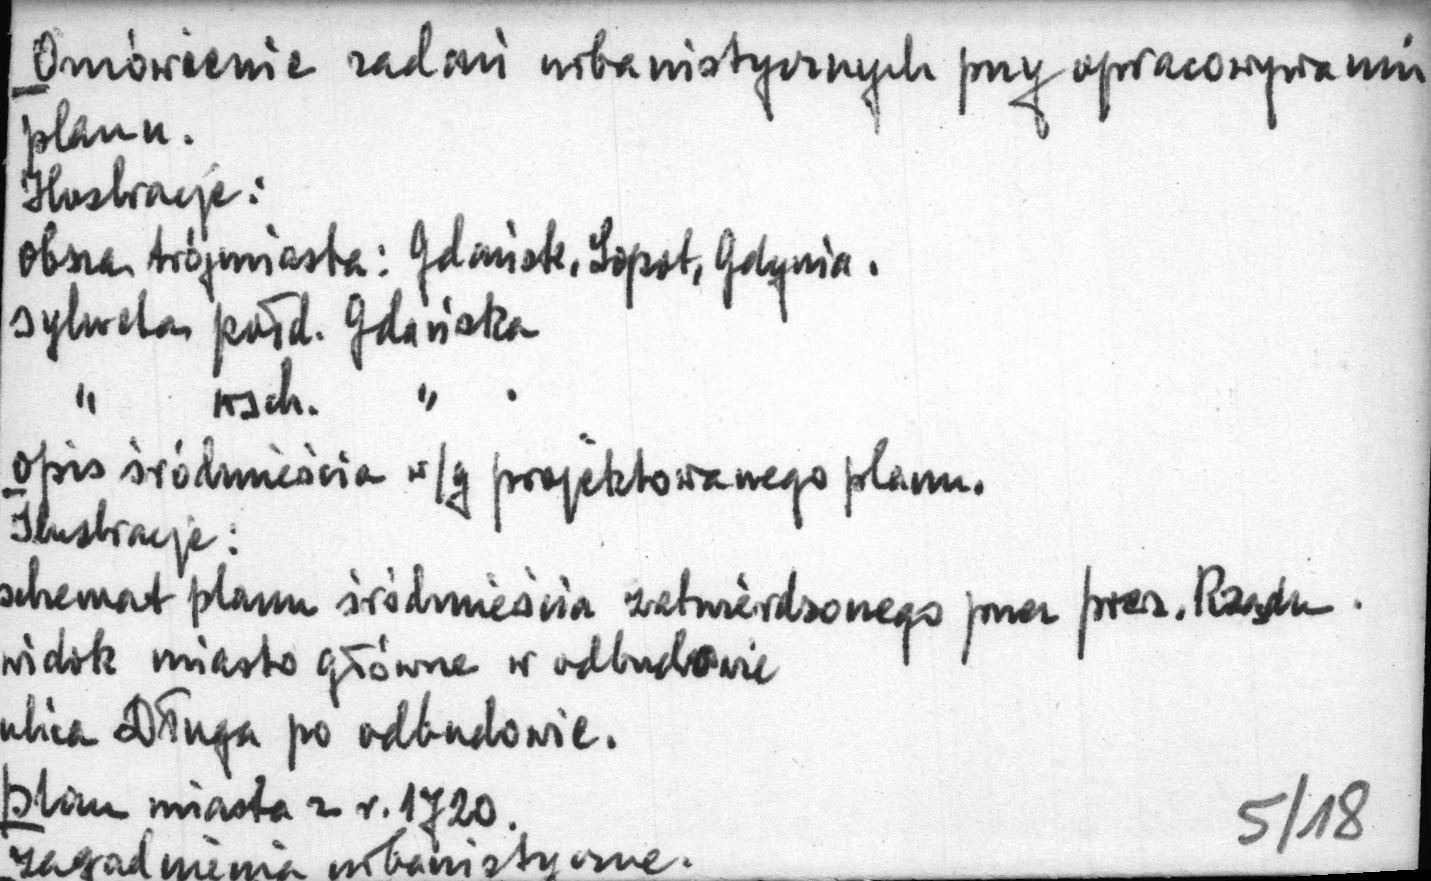 Omówienie zadań urbanistycznych przy opracowywaniu
planu.
Ilustracje:
obszar trójmiasta: Gdańsk, Sopot, Gdynia.
sylweta połd. Gdańska
" wsch. " .
opis śródmieścia w/g projektowanego planu.
Ilustracje:
schemat planu śródmieścia zatwierdzonego przez prez. Rządu.
widok miasto główne w odbudowie
ulica Długa po odbudowie.
plan miasta z r. 1720.
zagadnienia urbanistyczne.
5/18